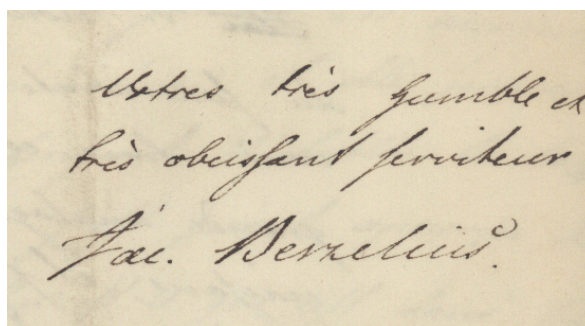 Votres très humble et
très obeissant serviteur
Jac. Berzelius.